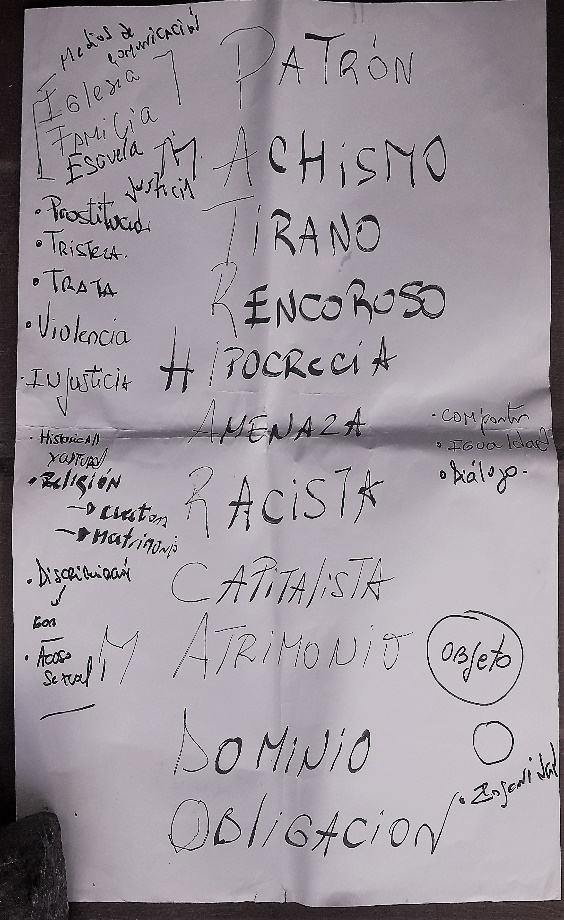 Medios de
comunicación
Iglesia
Familia
Escuela
Justicia
• Prostitució
• TRISTEZA.
• TRATA
• Violencia
• INjusticia
• Religión
• Discriminación
• Acoso
Sexual
PATRÓN
MACHISMO
TIRANO
RENCOROSO
HIPOCRECIA
AMENAZA
RACISTA
CAPITALISTA
MATRIMONIO
DOMINIO
OBLIGACION
• COMPARTIR
• IGUALDAD
• Diálogo.
OBJETO